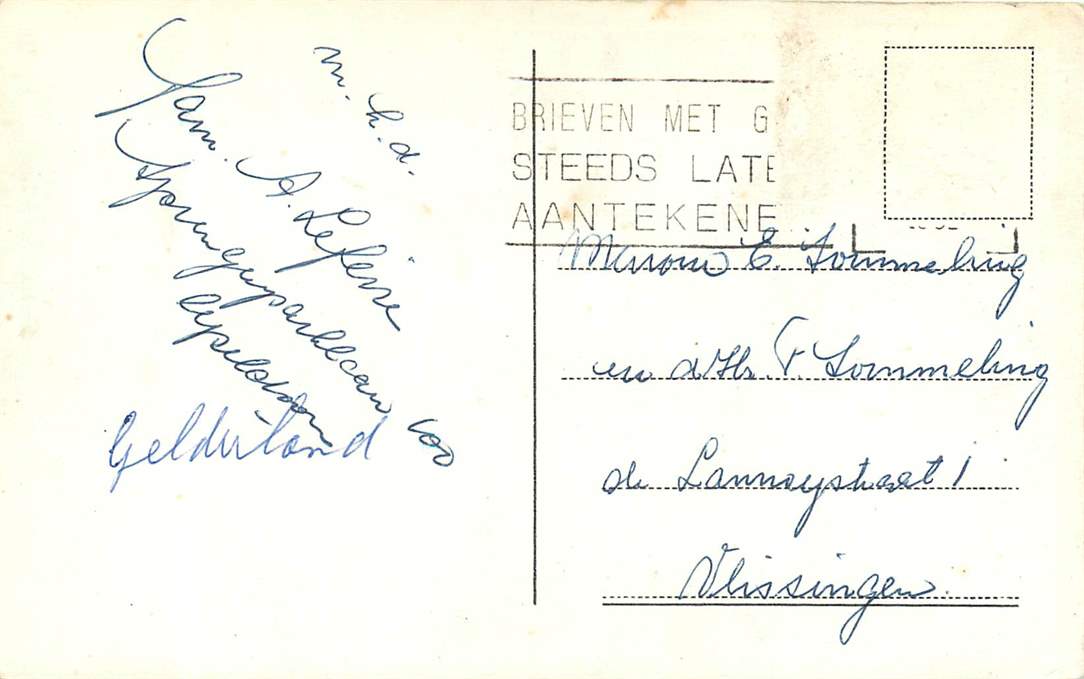 m. h. d.
Fam. A. Lefèvre
Sprengenparklaan 100
Apeldoorn
Gelderland
BRIEVEN MET G
STEEDS LATE
AANTEKENE
E. Sommeling
en d Hr. F. Sommeling
de Lannoystraat 1
Vlissingen.